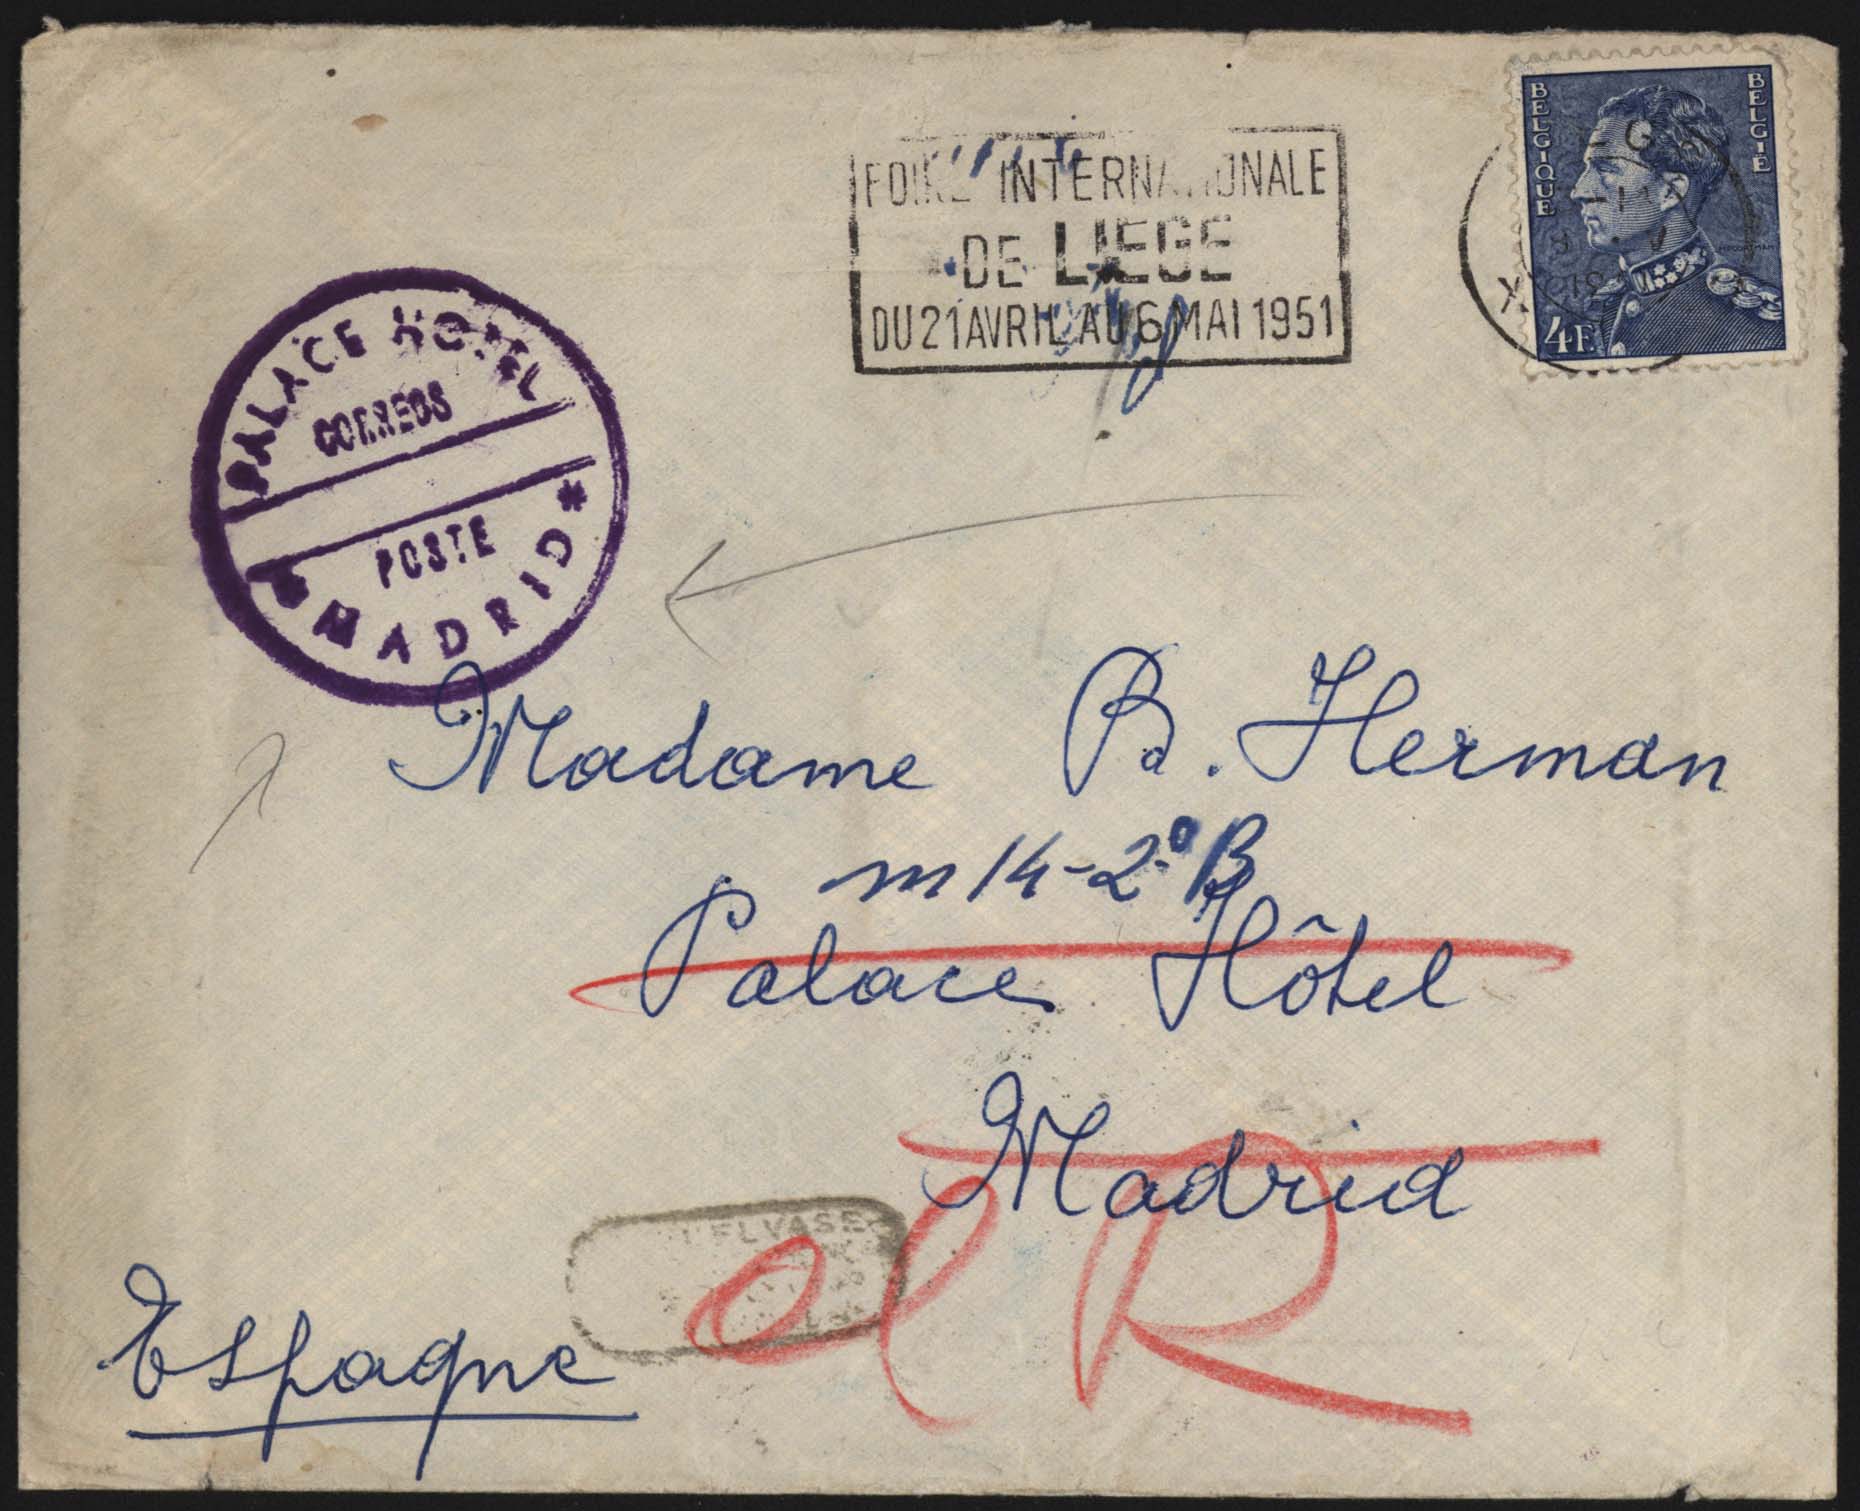 BELGIQUE
BELGIË
4F.
FOIRE INTERNATIONALE
DE LIEGE
DU 21 AVRIL AU 6 MAI 1951
PALACE HOTEL
CORREOS
POSTE
* MADRID *
Madame B. Herman
m 14-2º B
Palace Hôtel
Madrid
al R
Espagne